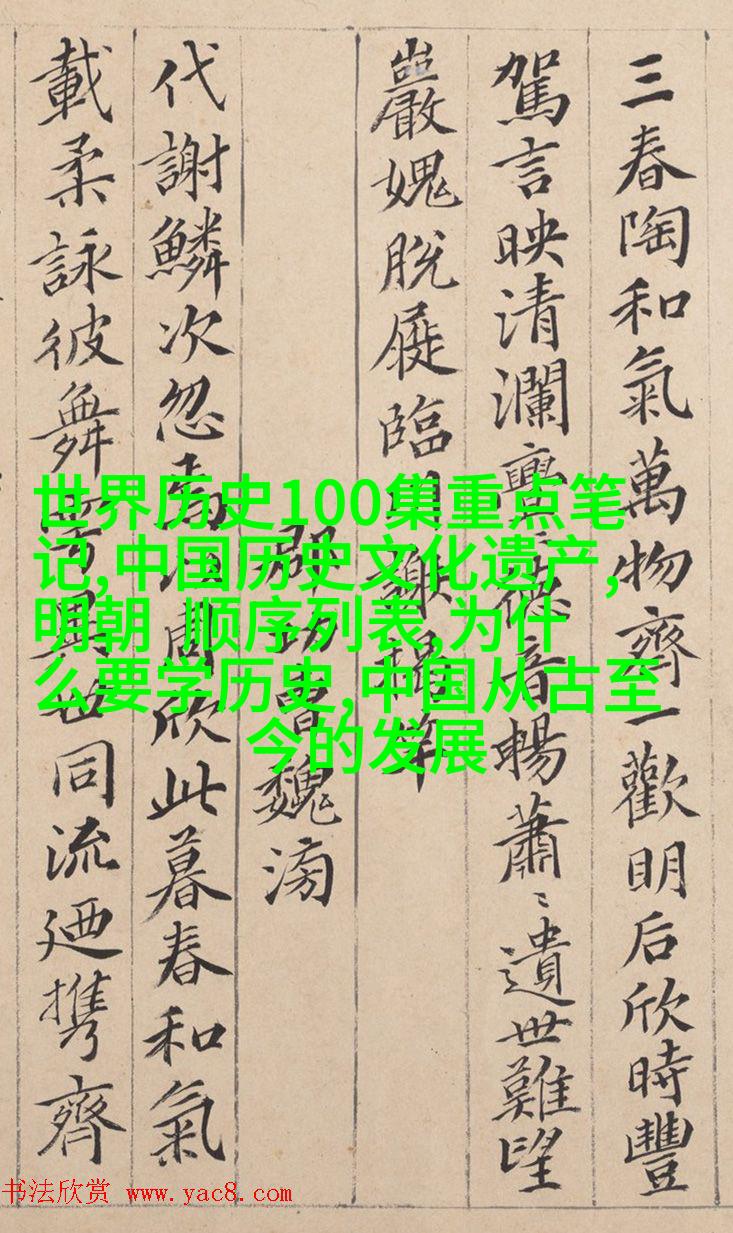 三春陶和氣萬物齊一歡明后欣時豐
駕言映清瀾亹德音暢蕭〻遺世難望
巖愧脫屣臨謝揭竿
郡功曹魏滂
代謝鱗次忽焉以周欣此暮春和氣
載柔詠彼舞雩異世同流迺携齊
世界历史100集重点笔
记,中国历史文化遗产,
明朝 顺序列表,为什
么要学历史,中国从古至
今的发展
书法欣赏 www.yac8.com